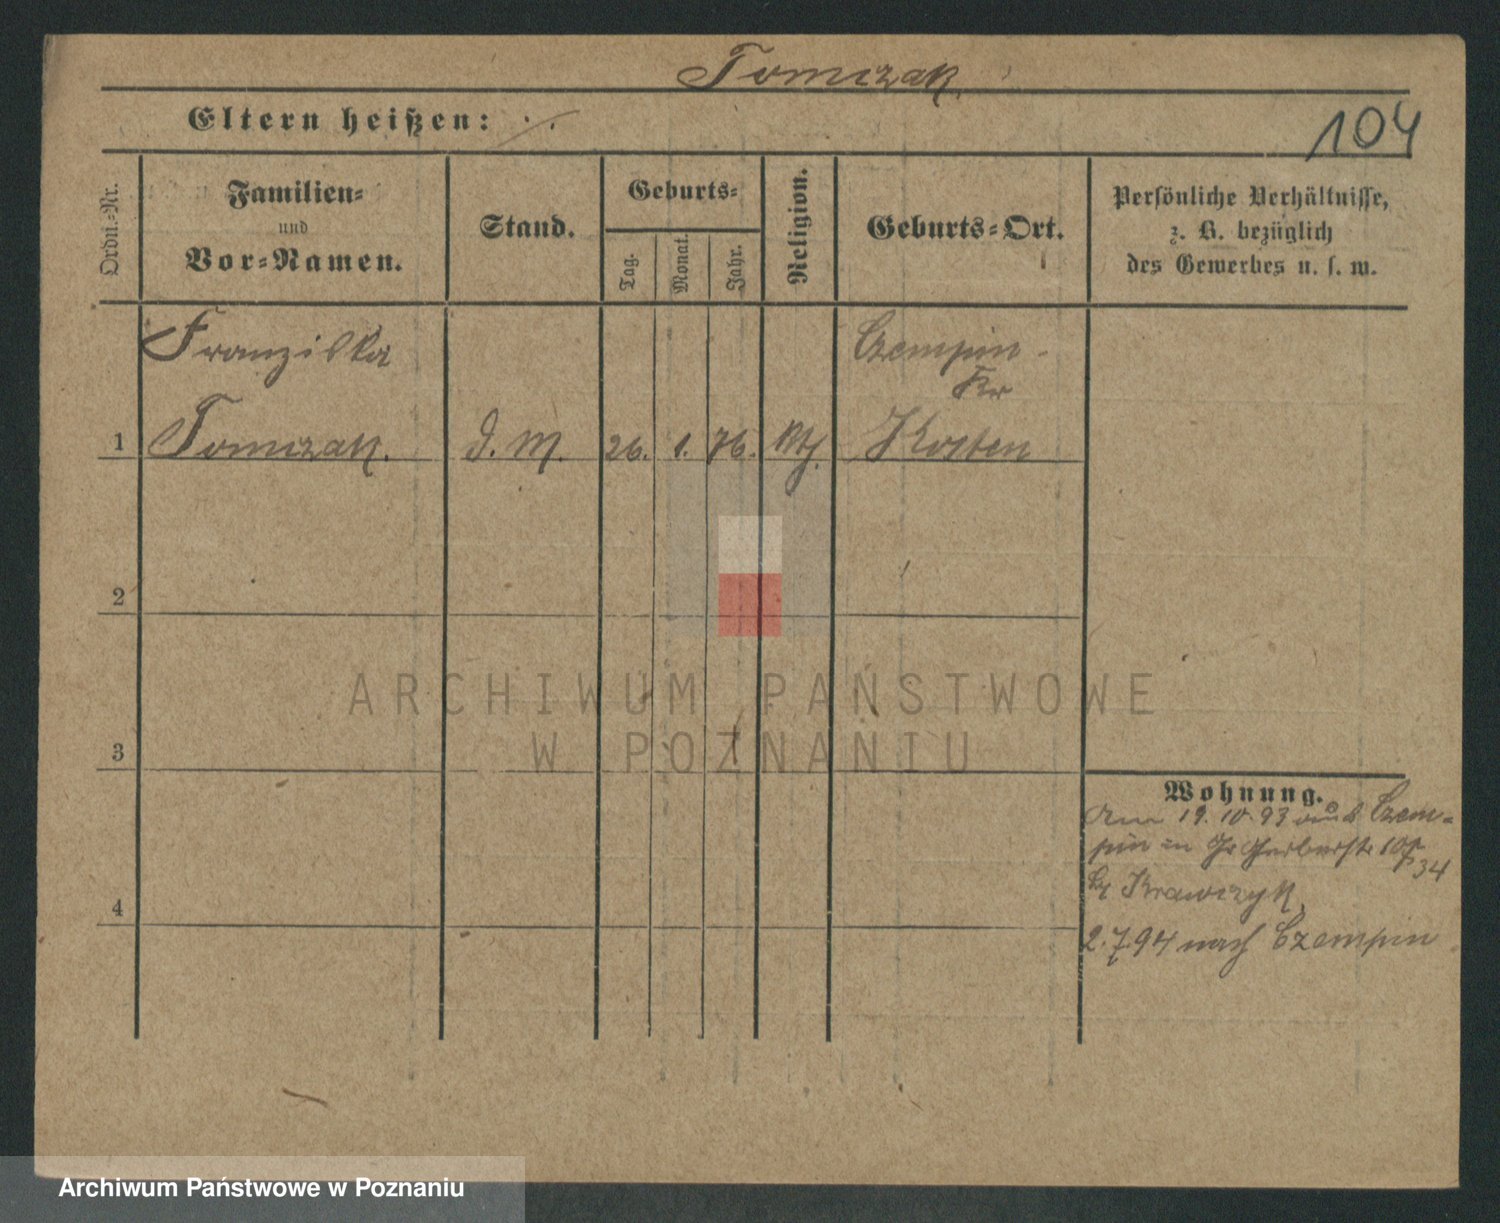 Tomczak.
Eltern heißen: ·/.
104
Ordn.-Nr.
Familien-
und
Vor-Namen.
Stand.
Geburts-
Tag.
Monat.
Jahr.
Religion.
Geburts-Ort.
Persönliche Verhältnisse,
z. B. bezüglich
des Gewerbes u. s. w.
Franziska
Czempin -
Kr
1 Tomczak. d. M. 26. 1. 76. kth. Kosten
2
3
4
Wohnung.
Am 19.10.93 aus Czem-
pin in Gr Gerberstr
34
Krawczyk
2.7.94 nach Czempin
ARCHIWUM PAŃSTWOWE
W POZNANIU
Archiwum Państwowe w Poznaniu